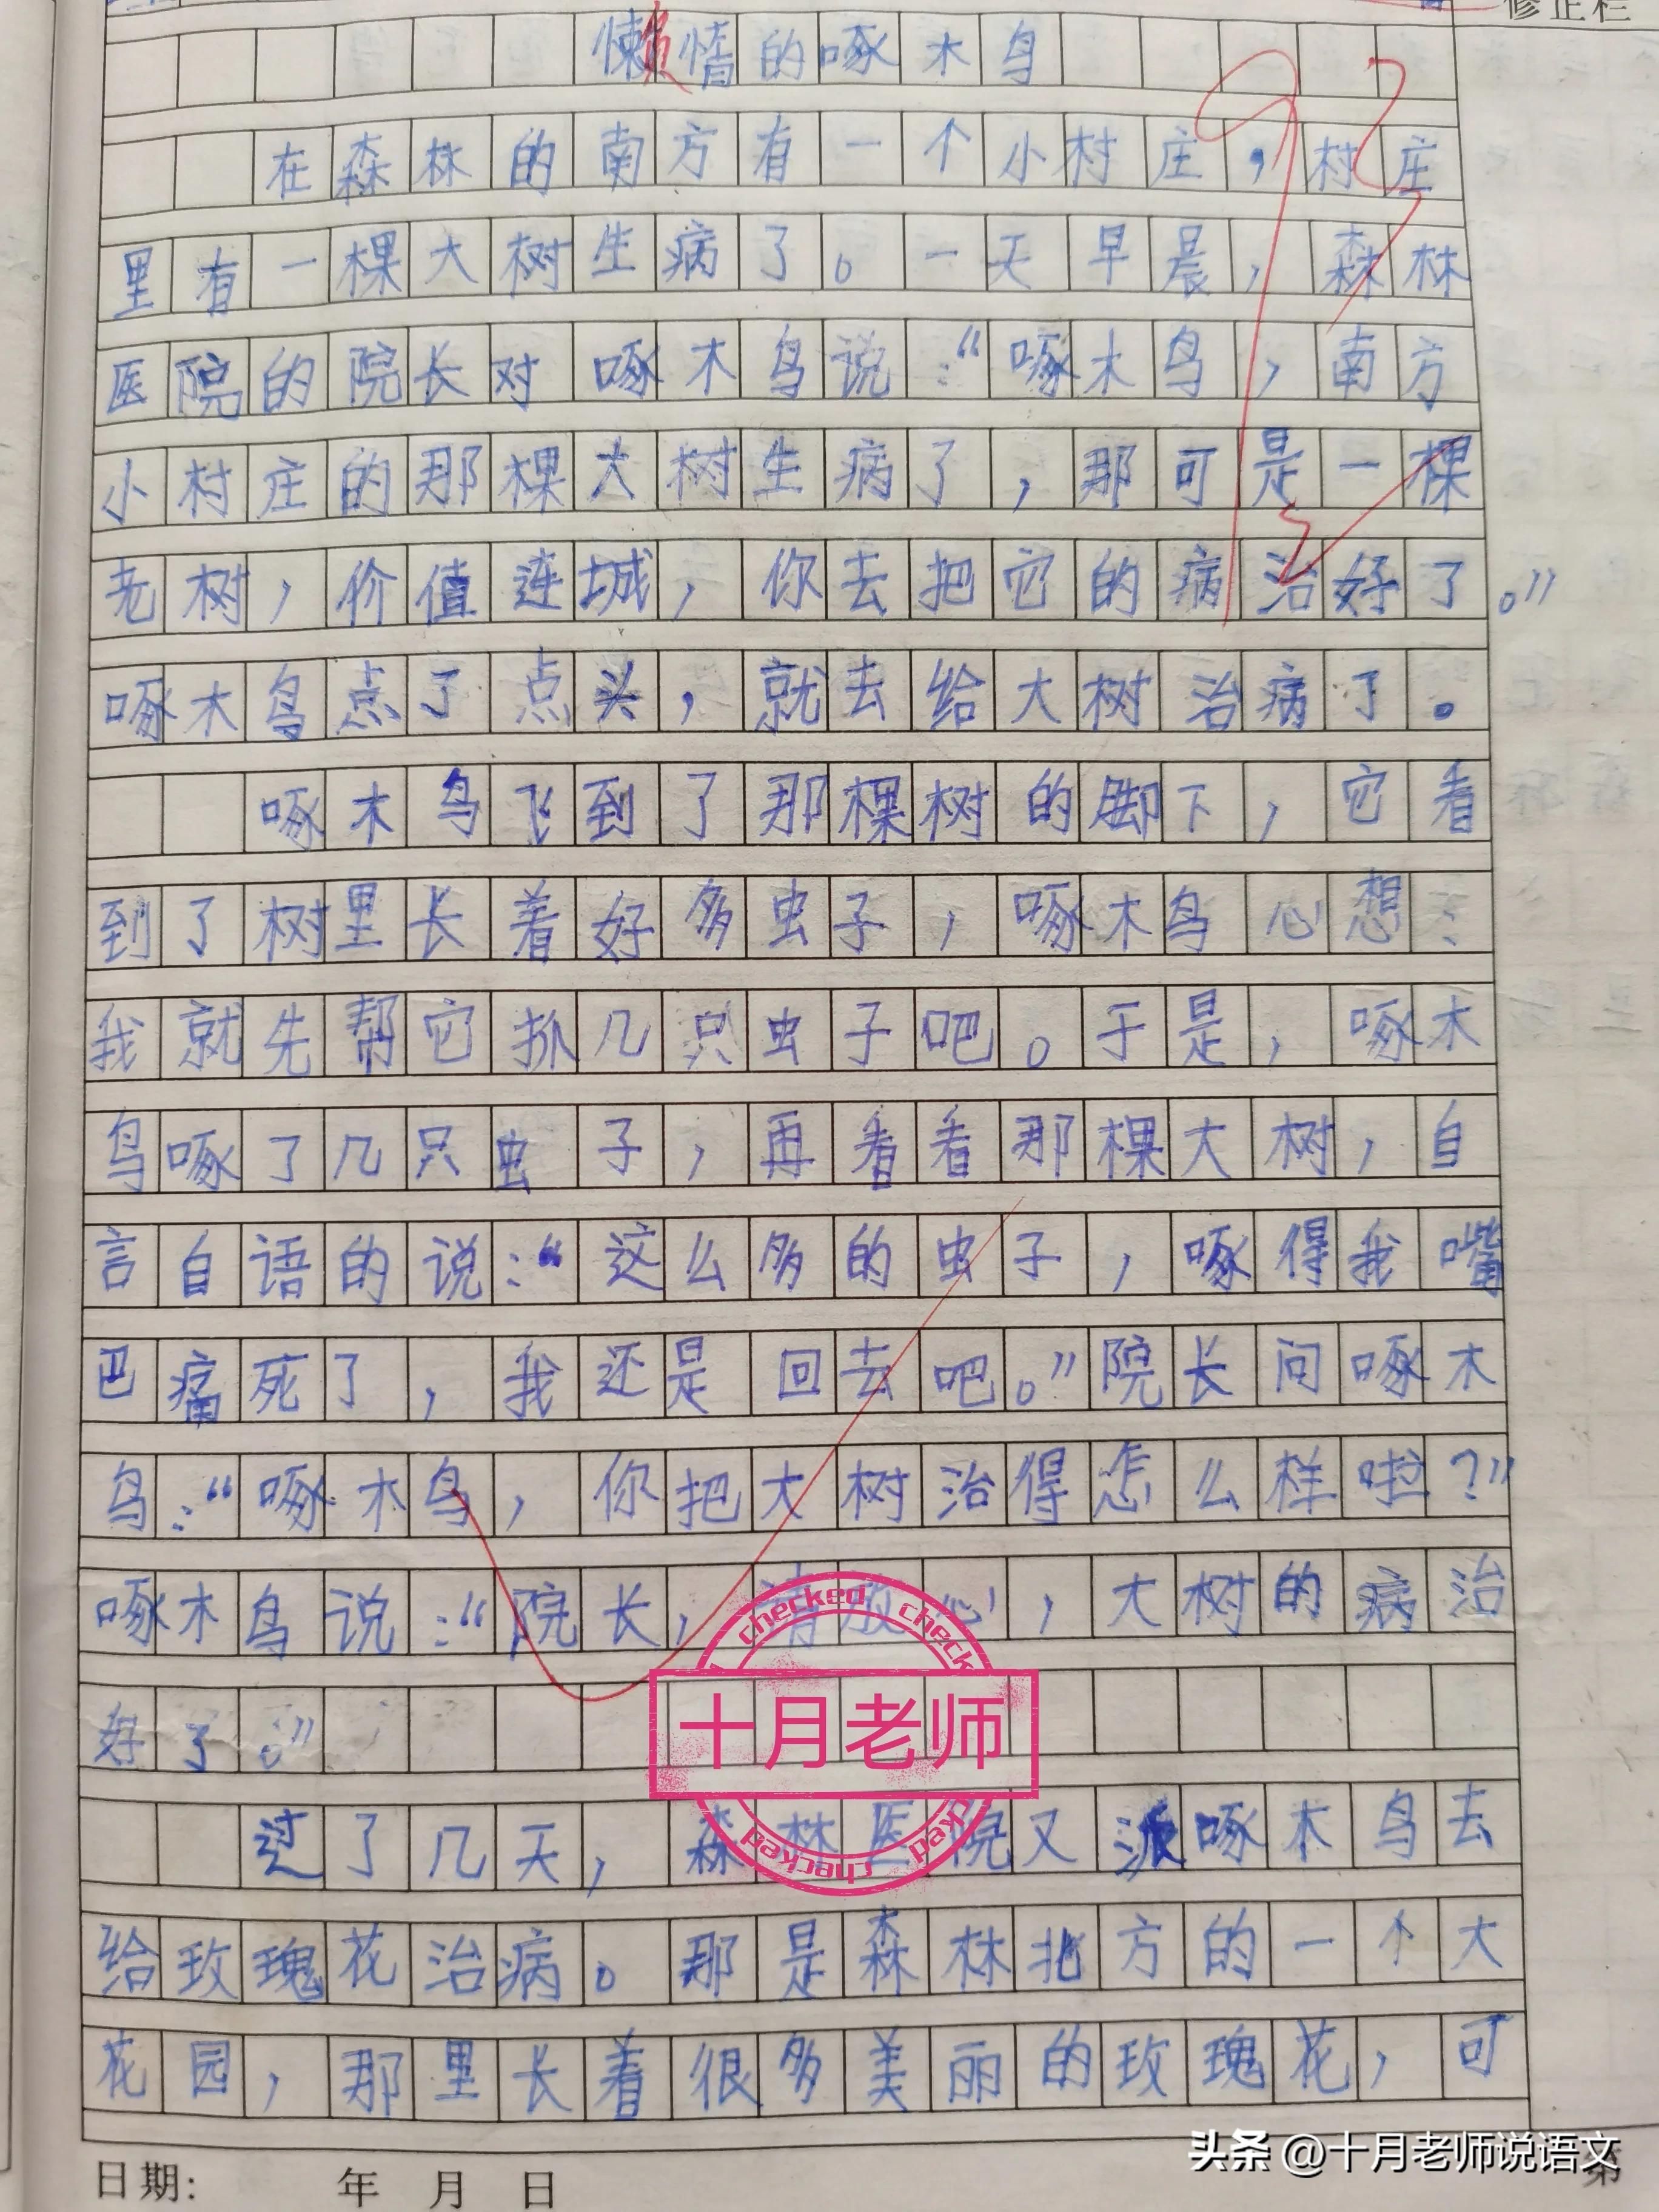 修正栏
懒惰的啄木鸟
在森林的南方有一个小村庄,村庄
里有一棵大树生病了。一天早晨,森林
医院的院长对啄木鸟说:“啄木鸟,南方
小村庄的那棵大树生病了,那可是一棵
老树,价值连城,你去把它的病治好了。”
啄木鸟点了点头,就去给大树治病了。
啄木鸟飞到了那棵树的脚下,它看
到了树里长着好多虫子,啄木鸟心想:
我就先帮它抓几只虫子吧。于是,啄木
鸟啄了几只虫子,再看看那棵大树,自
言自语的说:“这么多的虫子,啄得我嘴
巴痛死了,我还是回去吧。”院长问啄木
鸟:“啄木鸟,你把大树治得怎么样啦?”
啄木鸟说:“院长,请放心,大树的病治
好了。”
checked check
十月老师
checked checked
过了几天,森林医院又派啄木鸟去
给玫瑰花治病。那是森林北方的一个大
花园,那里长着很多美丽的玫瑰花,可
头条 @十月老师说语文
日期: 年 月 日 第